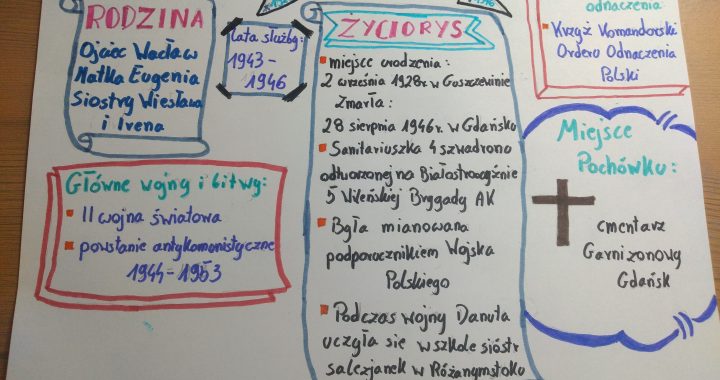 RODZINA
Ojciec Wacław
Matka Eugenia
Siostry Wiesława
i Irena
lata służby:
1943 -
- 1946
Główne wojny i bitwy:
II wojna światowa
powstanie antykomonistyczne
1944 - 1953
ŻYCIORYS
miejsce urodzenia:
2 września 1928r. w Guszczewinie
Zmarła:
28 sierpnia 1946r. w Gdańsku
Sanitariuszka 4 szwadronu
odtworzonej na Białostocczyźnie
5 Wileńskiej Brygady AK
Była mianowana
podporucznikiem Wojska
Polskiego
Podczas wojny Danuta
uczyła się w szkole sióstr
salezjanek w Różanymstoku
odznaczenia
Krzyż Komandorski
Orderu Odnaczenia
Polski
Miejsce
Pochówku:
cmentarz
Garnizonowy
Gdańsk